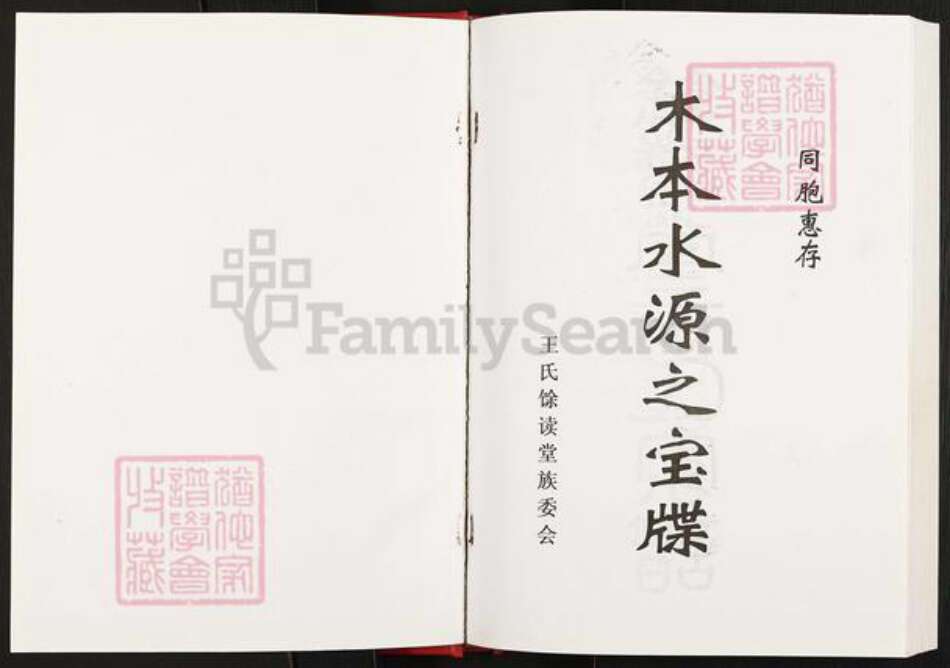 同胞惠存
木本水源之宝牒
王氏馀读堂族委会
FamilySearch
猶他家
譜學會
收藏
猶他家
譜學會
收藏